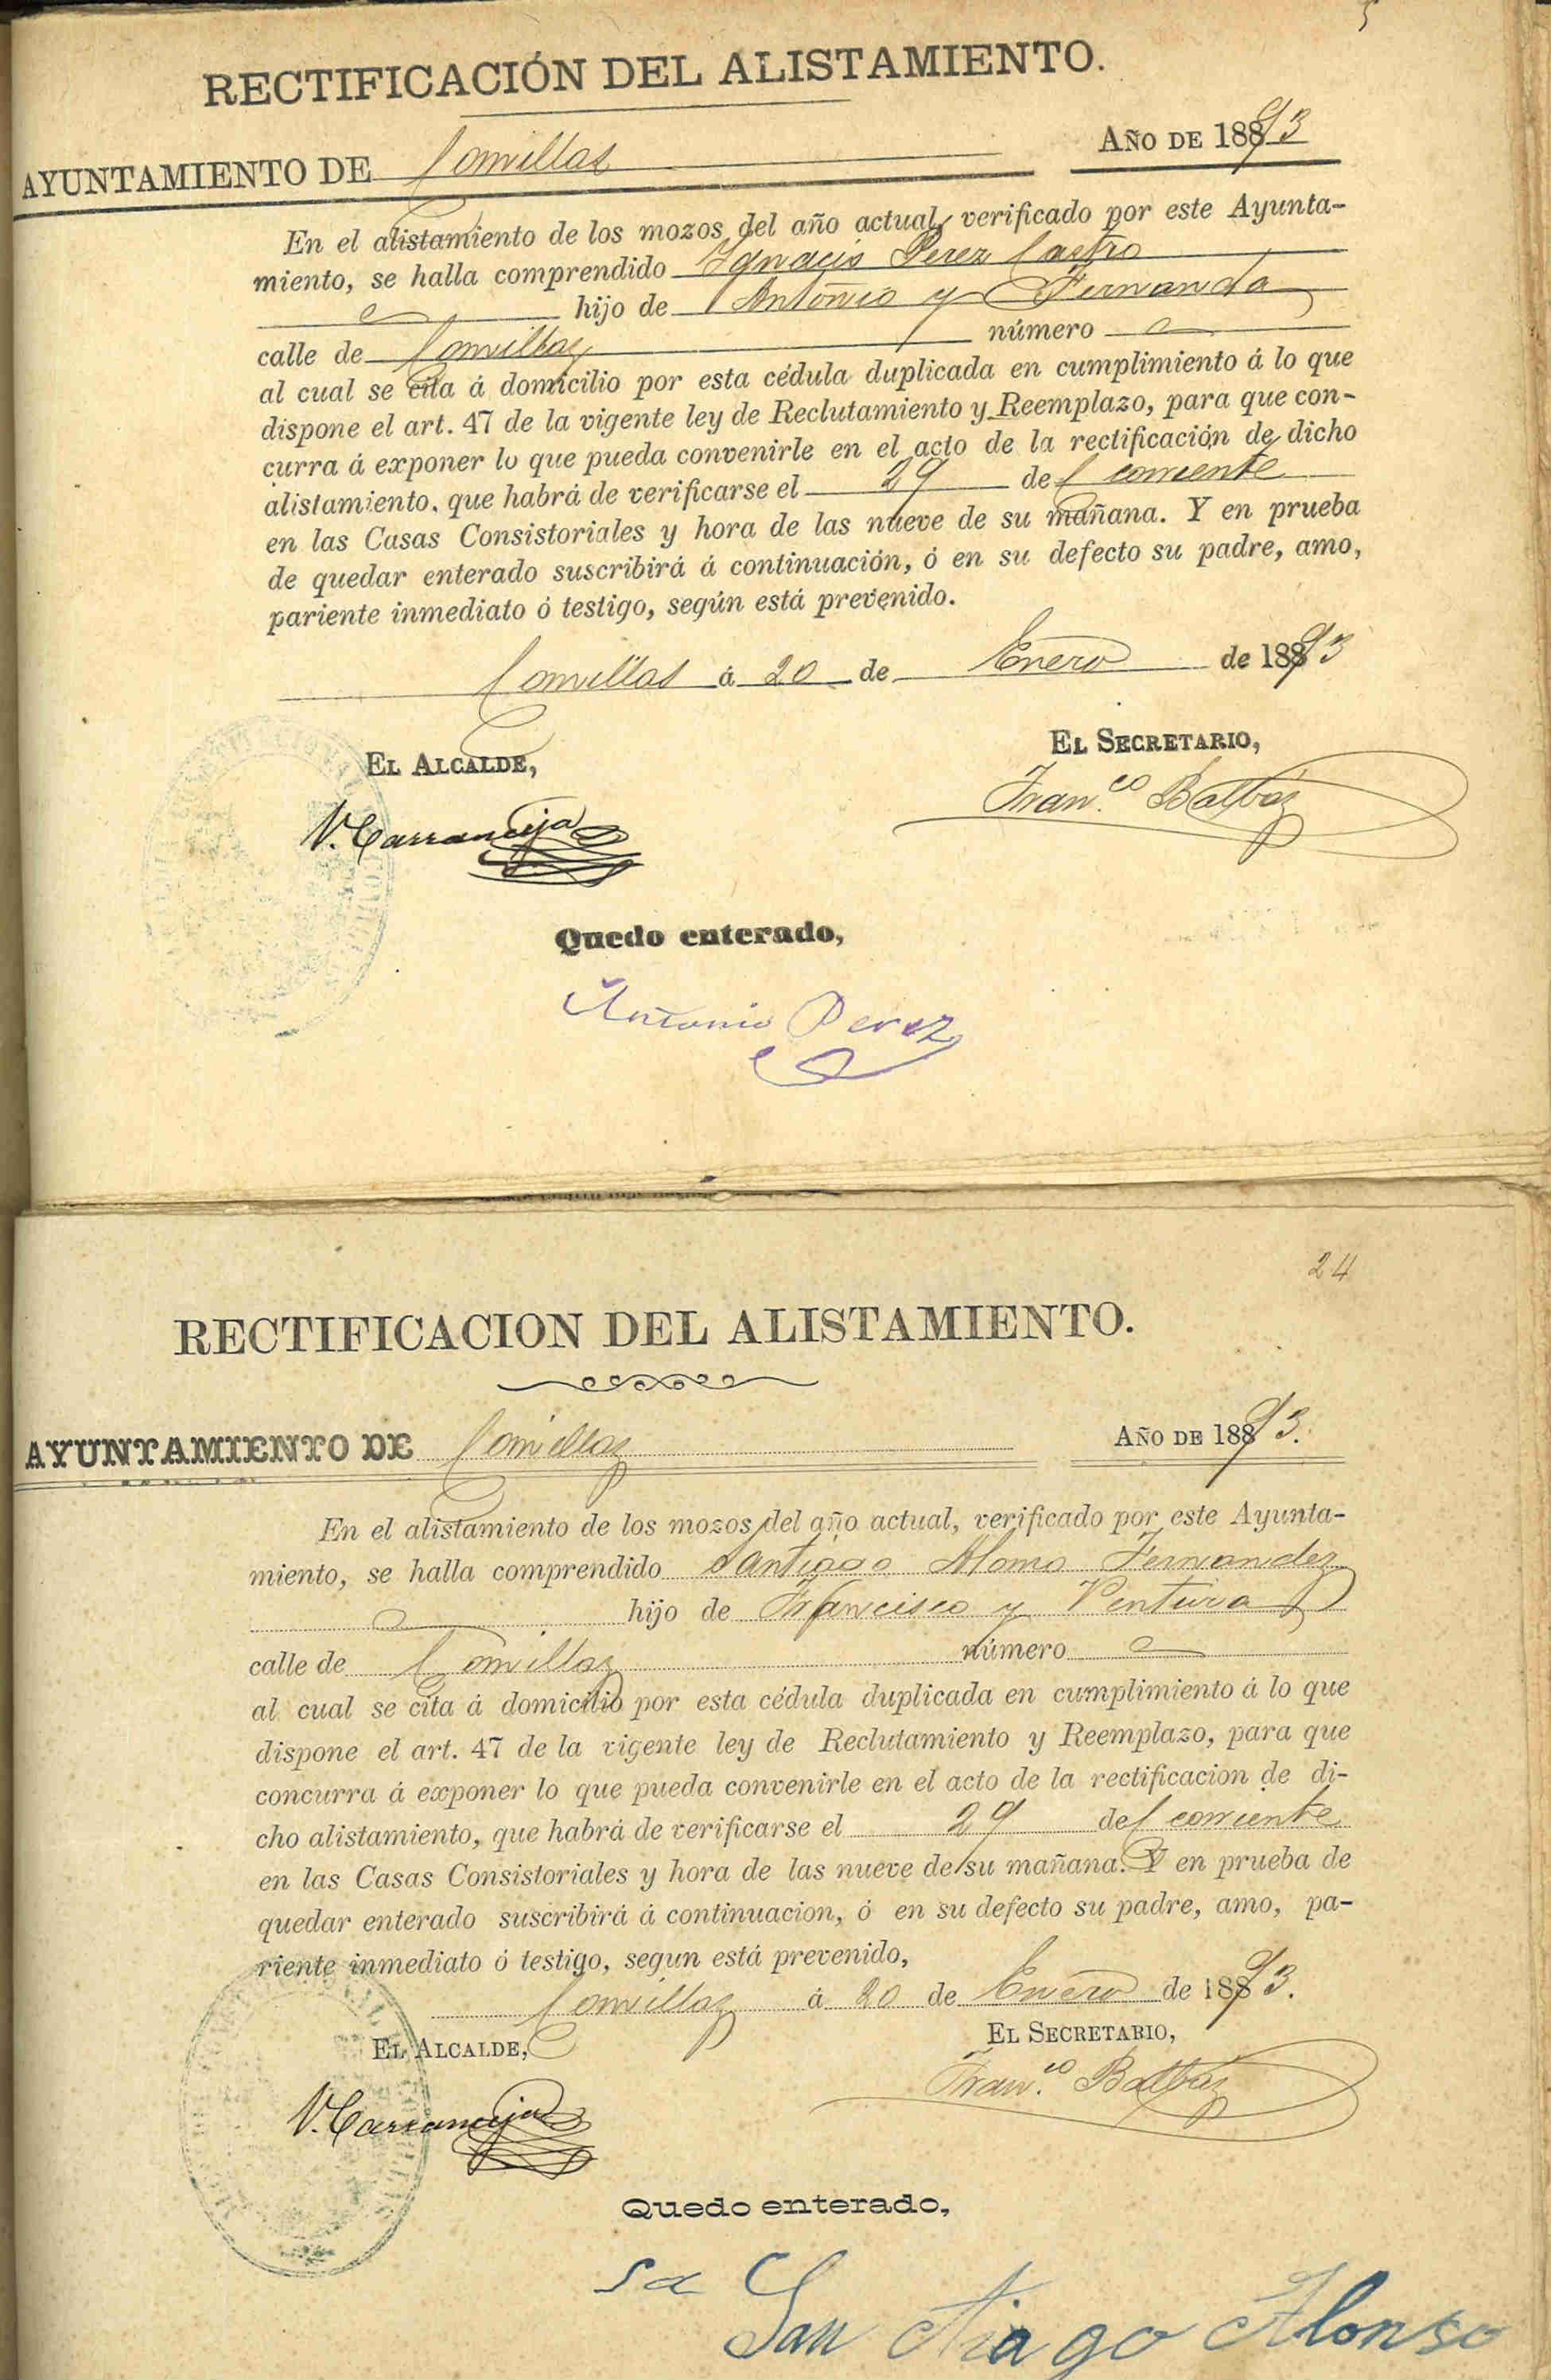 RECTIFICACIÓN DEL ALISTAMIENTO.
AYUNTAMIENTO DE Comillas AÑO DE 18893
En el alistamiento de los mozos del año actual, verificado por este Ayunta-
miento, se halla comprendido Ignacio Perez Castro
hijo de Antonio y Fernanda
calle de Comillas número
al cual se cita á domicilio por esta cédula duplicada en cumplimiento á lo que
dispone el art. 47 de la vigente ley de Reclutamiento y Reemplazo, para que con-
curra á exponer lo que pueda convenirle en el acto de la rectificación de dicho
alistamiento, que habrá de verificarse el 29 del corriente
en las Casas Consistoriales y hora de las nueve de su mañana. Y en prueba
de quedar enterado suscribirá á continuación, ó en su defecto su padre, amo,
pariente inmediato ó testigo, según está prevenido.
Comillas á 20 de Enero de 18893
EL ALCALDE, EL SECRETARIO,
V. Carranceja Fran.co Balbás
Quedo enterado,
Antonio Perez
24
RECTIFICACION DEL ALISTAMIENTO.
AYUNTAMIENTO DE Comillas AÑO DE 18893.
En el alistamiento de los mozos del año actual, verificado por este Ayunta-
miento, se halla comprendido Santiago Alonso Fernandez
hijo de Francisco y Ventura
calle de Comillas número
al cual se cita á domicilio por esta cédula duplicada en cumplimiento á lo que
dispone el art. 47 de la vigente ley de Reclutamiento y Reemplazo, para que
concurra á exponer lo que pueda convenirle en el acto de la rectificacion de di-
cho alistamiento, que habrá de verificarse el 29 del corriente
en las Casas Consistoriales y hora de las nueve de su mañana. Y en prueba de
quedar enterado suscribirá á continuacion, ó en su defecto su padre, amo, pa-
riente inmediato ó testigo, segun está prevenido,
Comillas á 20 de Enero de 18893.
EL ALCALDE, EL SECRETARIO,
V. Carranceja Fran.co Balbás
Quedo enterado,
Sa
San tiago Alonso